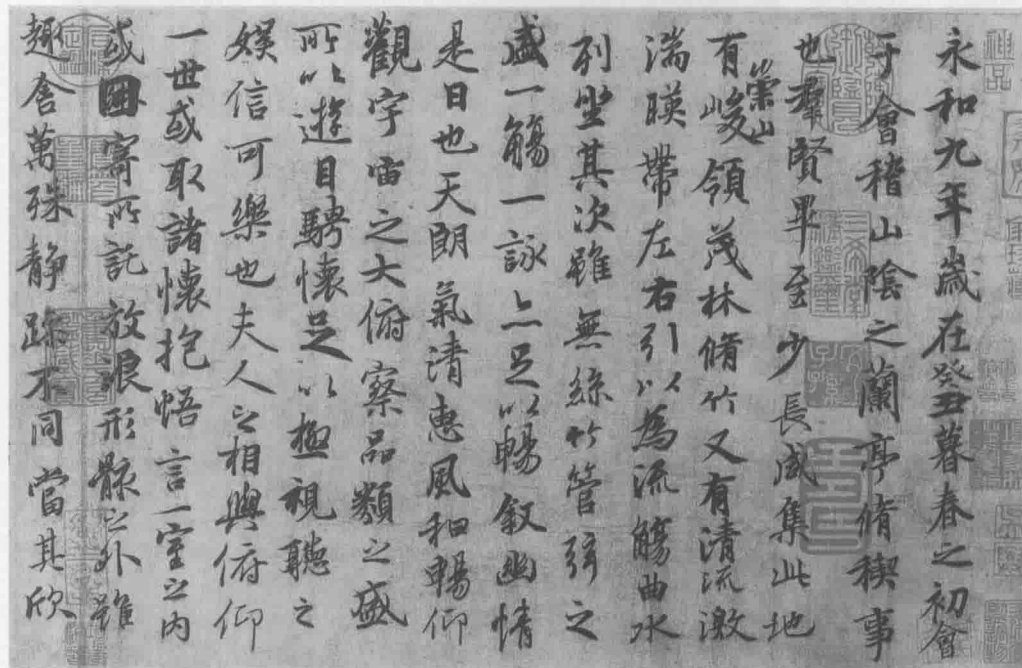 永和九年歲在癸丑暮春之初會
于會稽山陰之蘭亭脩稧事
也羣賢畢至少長咸集此地
有崇山峻領茂林脩竹又有清流激
湍暎帶左右引以為流觴曲水
列坐其次雖無絲竹管弦之
盛一觴一詠亦足以暢敘幽情
是日也天朗氣清惠風和暢仰
觀宇宙之大俯察品類之盛
所以遊目騁懷足以極視聽之
娛信可樂也夫人之相與俯仰
一世或取諸懷抱悟言一室之內
或因寄所託放浪形骸之外雖
趣舍萬殊靜躁不同當其欣
神品